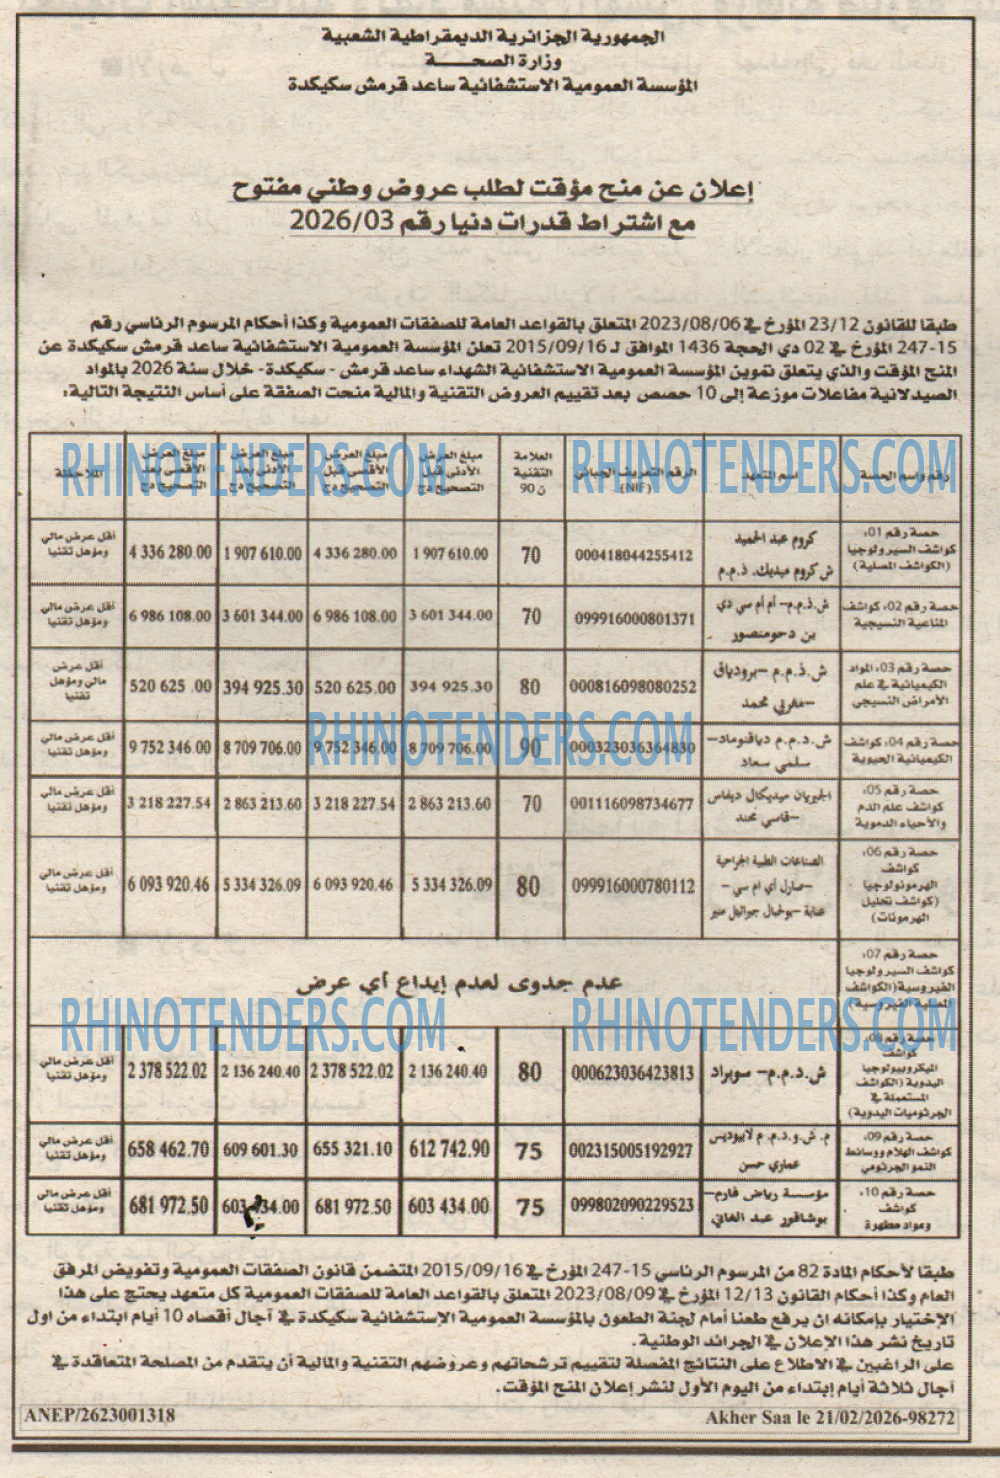 الجمهورية الجزائرية الديمقراطية الشعبية
وزارة الصحـــــــة
المؤسسة العمومية الاستشفائية ساعد قرمش سكيكدة
إعلان عن منح مؤقت لطلب عروض وطني مفتوح
مع اشتراط قدرات دنيا رقم 2026/03
طبقا للقانون 23/12 المؤرخ في 2023/08/06 المتعلق بالقواعد العامة للصفقات العمومية وكذا أحكام المرسوم الرئاسي رقم
15-247 المؤرخ في 02 دي الحجة 1436 الموافق لـ 2015/09/16 تعلن المؤسسة العمومية الاستشفائية ساعد قرمش سكيكدة عن
المنح المؤقت والذي يتعلق بتموين المؤسسة العمومية الاستشفائية الشهداء ساعد قرمش - سكيكدة - خلال سنة 2026 بالمواد
الصيدلانية مفاعلات موزعة إلى 10 حصص بعد تقييم العروض التقنية والمالية منحت الصفقة على أساس النتيجة التالية:
رقم واسم الحصة | اسم المتعهد | الرقم التعريف الجبائي (NIF) | العلامة التقنية ن 90 | مبلغ العرض الأدنى قبل التصحيح دج | مبلغ العرض الأقصى قبل التصحيح دج | مبلغ العرض الأدنى بعد التصحيح دج | مبلغ العرض الأقصى بعد التصحيح دج | الملاحظة
حصة رقم 01: كواشف السيرولوجيا (الكواشف المصلية) | كروم عبد الحميد ش كروم ميديك. ذ.م.م | 000418044255412 | 70 | 1 907 610.00 | 4 336 280.00 | 1 907 610.00 | 4 336 280.00 | أقل عرض مالي ومؤهل تقنيا
حصة رقم 02: كواشف المناعية النسيجية | ش.ذ.م.م- أم أم سي دي بن دحومنصور | 099916000801371 | 70 | 3 601 344.00 | 6 986 108.00 | 3 601 344.00 | 6 986 108.00 | أقل عرض مالي ومؤهل تقنيا
حصة رقم 03: المواد الكيميائية في علم الأمراض النسيجي | ش.ذ.م.م -برودياق -مغربي محمد | 000816098080252 | 80 | 394 925.30 | 520 625.00 | 394 925.30 | 520 625 .00 | أقل عرض مالي ومؤهل تقنيا
حصة رقم 04: كواشف الكيميائية الحيوية | ش.د.م.م ديافنوماد- سلمي سعاد | 000323036364830 | 90 | 8 709 706.00 | 9 752 346.00 | 8 709 706.00 | 9 752 346.00 | أقل عرض مالي ومؤهل تقنيا
حصة رقم 05: كواشف علم الدم والأحياء الدموية | الجيريان ميديكال ديفاس -قاسي محند | 001116098734677 | 70 | 2 863 213.60 | 3 218 227.54 | 2 863 213.60 | 3 218 227.54 | أقل عرض مالي ومؤهل تقنيا
حصة رقم 06: كواشف الهرمونولوجيا (كواشف تحليل الهرمونات) | الصناعات الطبية الجراحية -صارل أي ام سي - عنابة -بوخمال جبرائيل منير | 099916000780112 | 80 | 5 334 326.09 | 6 093 920.46 | 5 334 326.09 | 6 093 920.46 | أقل عرض مالي ومؤهل تقنيا
حصة رقم 07: كواشف السيرولوجيا الفيروسية (الكواشف المصلية الفيروسية) | عدم جدوى لعدم إيداع أي عرض
حصة رقم 08: كواشف الميكروبيولوجيا اليدوية (الكواشف المستعملة في الجرثوميات اليدوية) | ش.د.م.م- سوبراد | 000623036423813 | 80 | 2 136 240.40 | 2 378 522.02 | 2 136 240.40 | 2 378 522.02 | أقل عرض مالي ومؤهل تقنيا
حصة رقم 09: كواشف الهلام ووسائط النمو الجرثومي | م.ش.و.ذ.م.م لابيوديس عماري حسن | 002315005192927 | 75 | 612 742.90 | 655 321.10 | 609 601.30 | 658 462.70 | أقل عرض مالي ومؤهل تقنيا
حصة رقم 10: كواشف ومواد مطهرة | مؤسسة رياض فارم- بوشاقور عبد الغاني | 099802090229523 | 75 | 603 434.00 | 681 972.50 | 603 434.00 | 681 972.50 | أقل عرض مالي ومؤهل تقنيا
طبقا لأحكام المادة 82 من المرسوم الرئاسي 15-247 المؤرخ في 2015/09/16 المتضمن قانون الصفقات العمومية وتفويض المرفق
العام وكذا أحكام القانون 12/13 المؤرخ في 2023/08/09 المتعلق بالقواعد العامة للصفقات العمومية كل متعهد يحتج على هذا
الإختيار بإمكانه ان يرفع طعنا أمام لجنة الطعون بالمؤسسة العمومية الإستشفائية سكيكدة في آجال أقصاه 10 أيام ابتداء من اول
تاريخ نشر هذا الإعلان في الجرائد الوطنية.
على الراغبين في الاطلاع على النتائج المفصلة لتقييم ترشحاتهم وعروضهم التقنية والمالية أن يتقدم من المصلحة المتعاقدة في
آجال ثلاثة أيام إبتداء من اليوم الأول لنشر إعلان المنح المؤقت.
ANEP/2623001318
Akher Saa le 21/02/2026-98272
RHINOTENDERS.COM
RHINOTENDERS.COM
RHINOTENDERS.COM
RHINOTENDERS.COM
RHINOTENDERS.COM